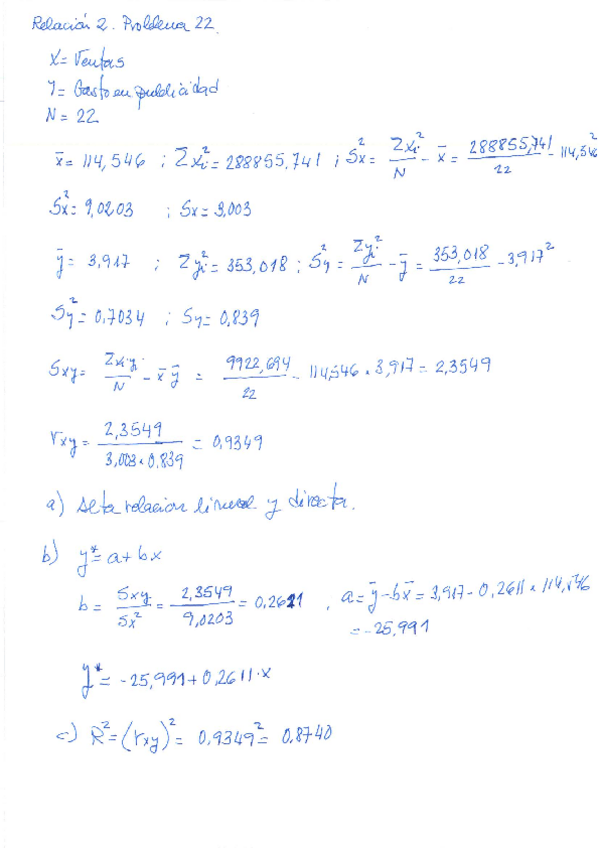 Relación 2. Problema 22.
X = Ventas
Y = Gasto en publicidad
N = 22
x̄ = 114,546 ; Σxi² = 288855,741 ; Sx² = Σxi²/N - x̄ = 288855,741/22 - 114,546²
Sx² = 9,0203 ; Sx = 3,003
ȳ = 3,917 ; Σyi² = 353,018 ; Sy² = Σyi²/N - ȳ = 353,018/22 - 3,917²
Sy² = 0,7034 ; Sy = 0,839
Sxy = Σxiyi/N - x̄ ȳ = 9922,694/22 - 114,546 × 3,917 = 2,3549
rxy = 2,3549/3,003 × 0,839 = 0,9349
a) Alta relación lineal y directa.
b) y* = a + bx
b = Sxy/Sx² = 2,3549/9,0203 = 0,2611 , a = ȳ - bx̄ = 3,917 - 0,2611 × 114,546
= -25,991
y* = -25,991 + 0,2611·x
c) R² = (rxy)² = 0,9349² = 0,8740